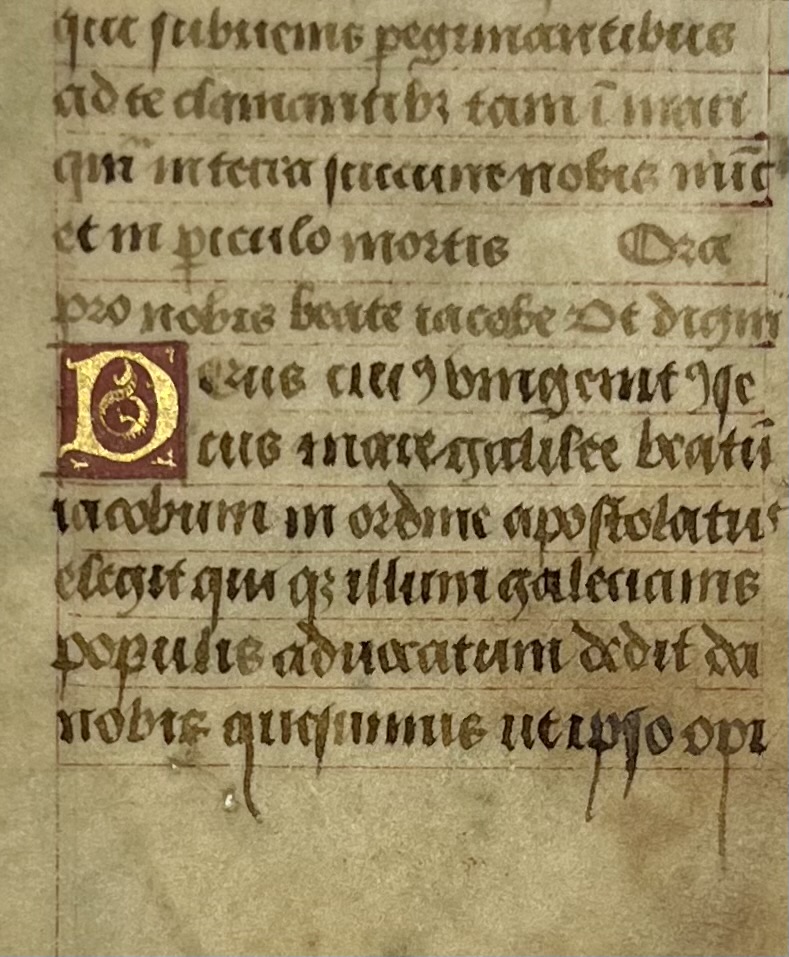 qui subuenis pegrinantibus
ad te clamantibꝫ tam ī mari
qm̄ in terra succurre nobis nūc
et in piculo mortis Ora
pro nobis beate iacobe Vt digni
Deus cui⁹ vnigenit⁹ se
cus mare galilee beatū
iacobum in ordine apostolatus
elegit qui qꝫ illum galecianis
populis aduocatum dedit da
nobis quesumus ut ipso opi